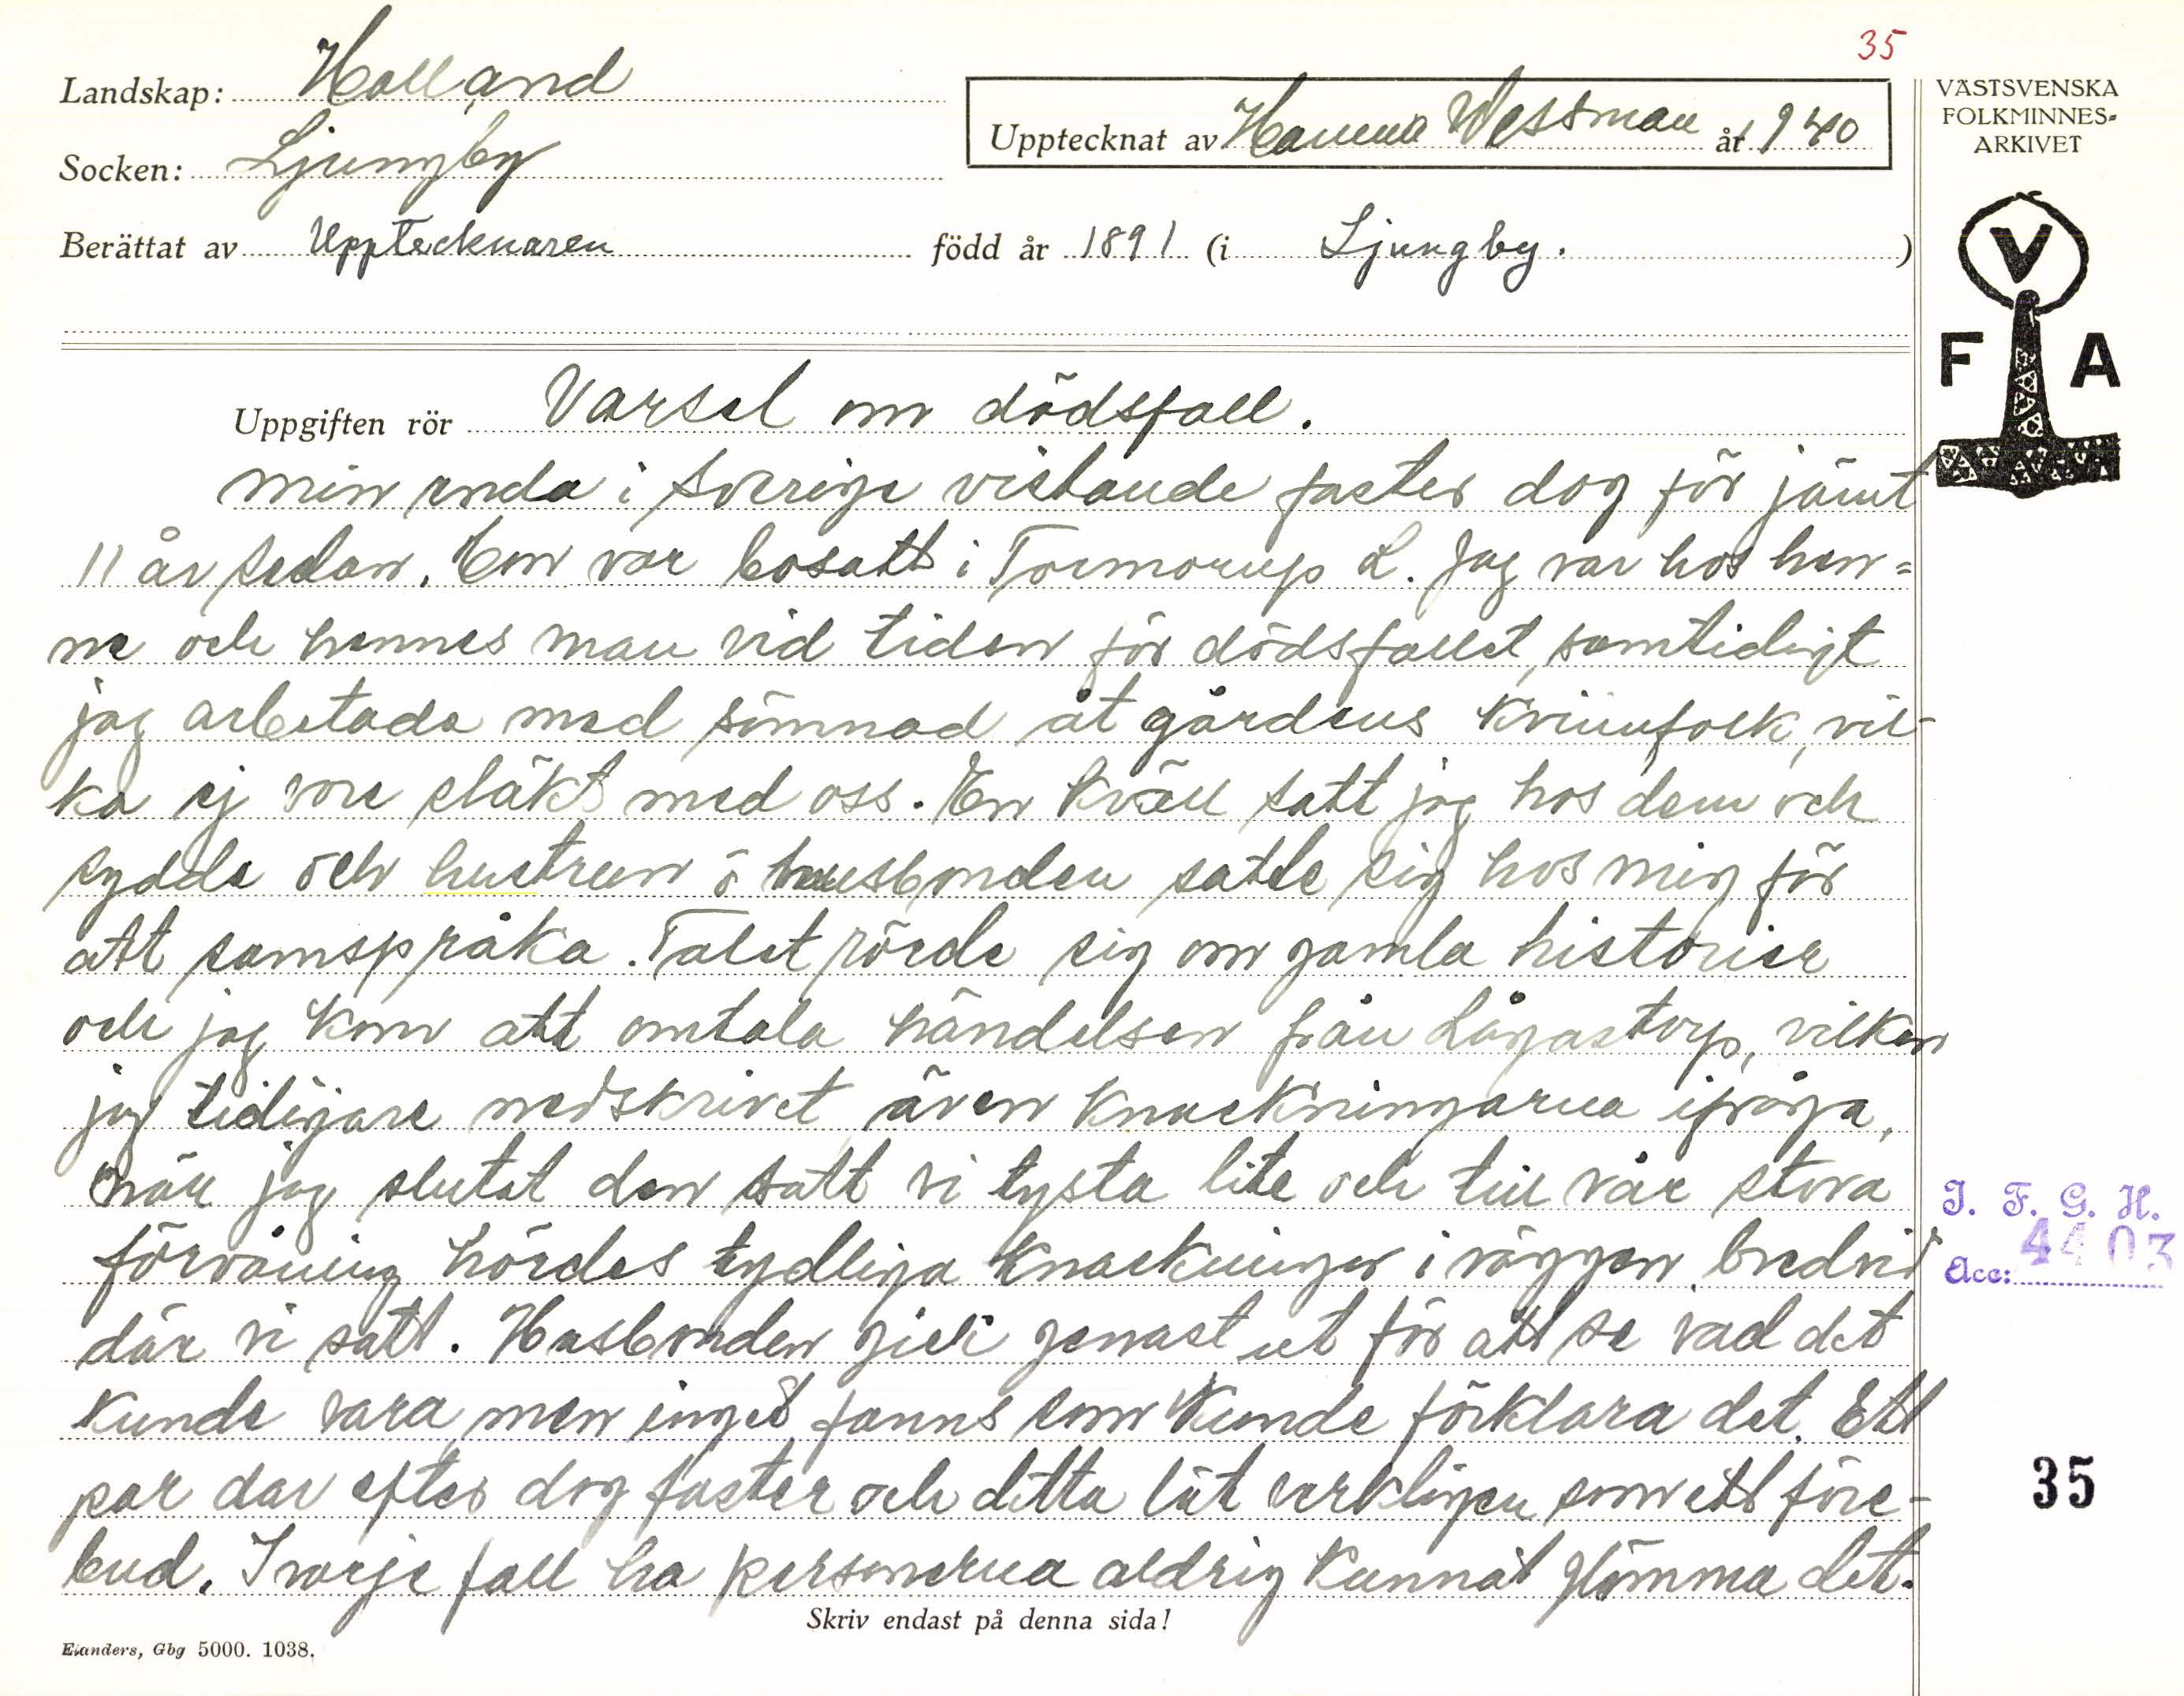 35
Landskap: Halland
Socken: Ljungby
Upptecknat av Hanna Wessman år 1940
Berättat av Upptecknaren född år 1891 (i Ljungby.)
VÄSTSVENSKA
FOLKMINNES-
ARKIVET
V
F A
Uppgiften rör Varsel om dödsfall.
Min enda i Sverige vistande faster dog för jämt
11 år sedan. Hon var bosatt i Tormorup L. Jag var hos hen=
ne och hennes man vid tiden för dödsfallet, samtidigt
jag arbetade med sömnad åt gårdens kvinnfolk, vil-
ka ej vore släkt med oss. En kväll satt jag hos dem och
sydde och hustrun ö husbonden satte sig hos mig för
att samspråka. Talet rörde sig om gamla historier
och jag kom att omtala händelsen från Lågastorp, vilken
jag tidigare nedskrivet även knackningarna ifråga,
när jag slutat den satt vi tysta lite och till vår stora
förvåning hördes tydliga knackningar i väggen bredvid
där vi satt. Husbonden gick genast ut för att se vad det
kunde vara, men inget fanns som kunde förklara det. Ett
par dar efter dog faster och detta lät verkligen som ett före-
bud. I varje fall ha personerna aldrig kunnat glömma det.
J. F. G. H.
Acc: 4403
35
Skriv endast på denna sida!
Elanders, Gbg 5000. 1038.